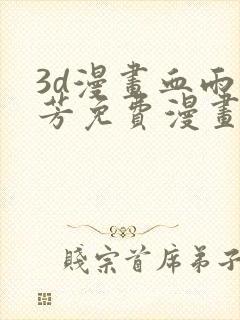 3d漫畫血雨
芳免費漫畫
賤宗首席弟子